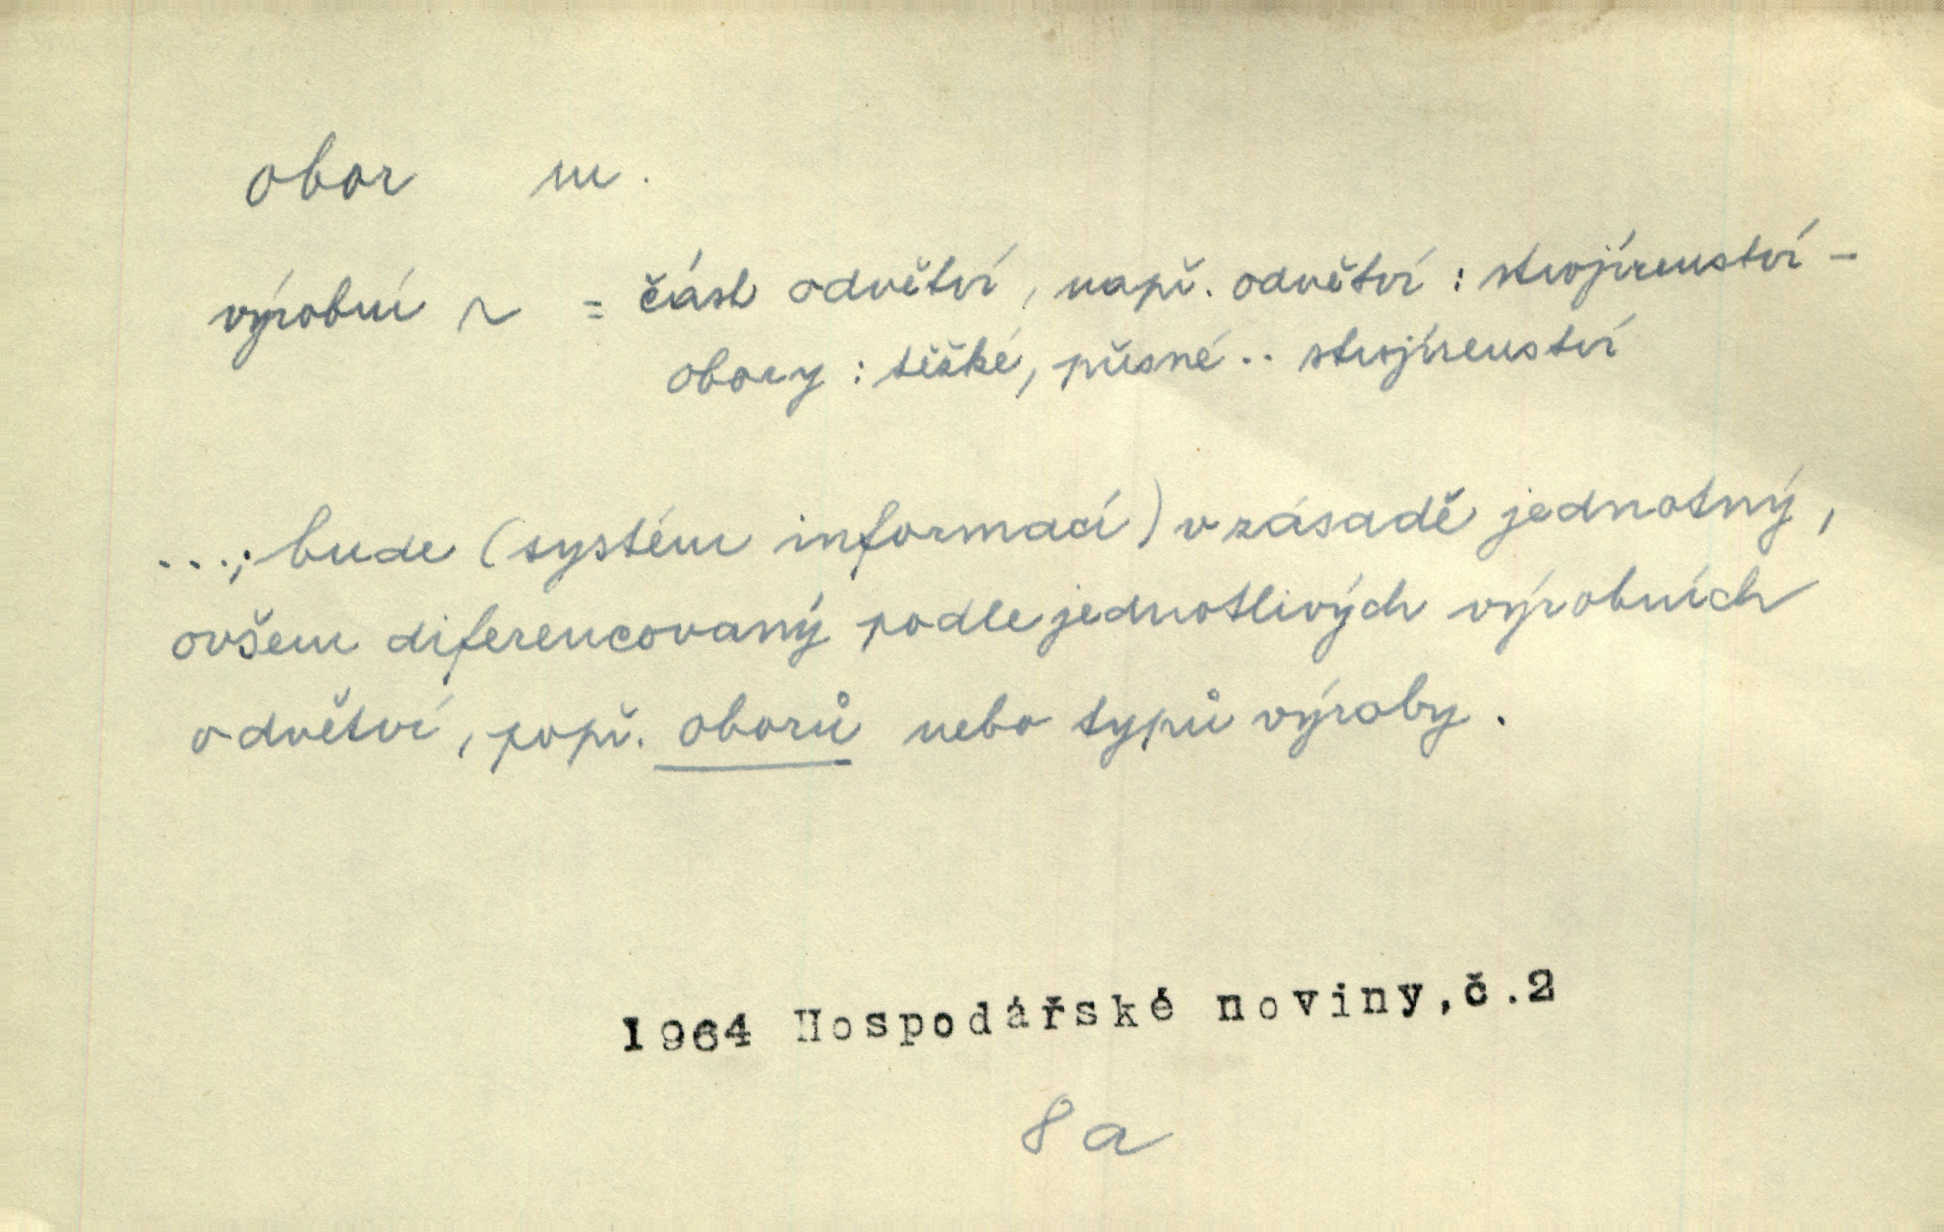 obor m.
výrobní ~ = část odvětví, např. odvětví : strojírenství –
obory : těžké, přesné .. strojírenství
...; bude (systém informací) v zásadě jednotný,
ovšem diferencovaný podle jednotlivých výrobních
odvětví, popř. oborů nebo typů výroby.
1964 Hospodářské noviny,č.2
8a